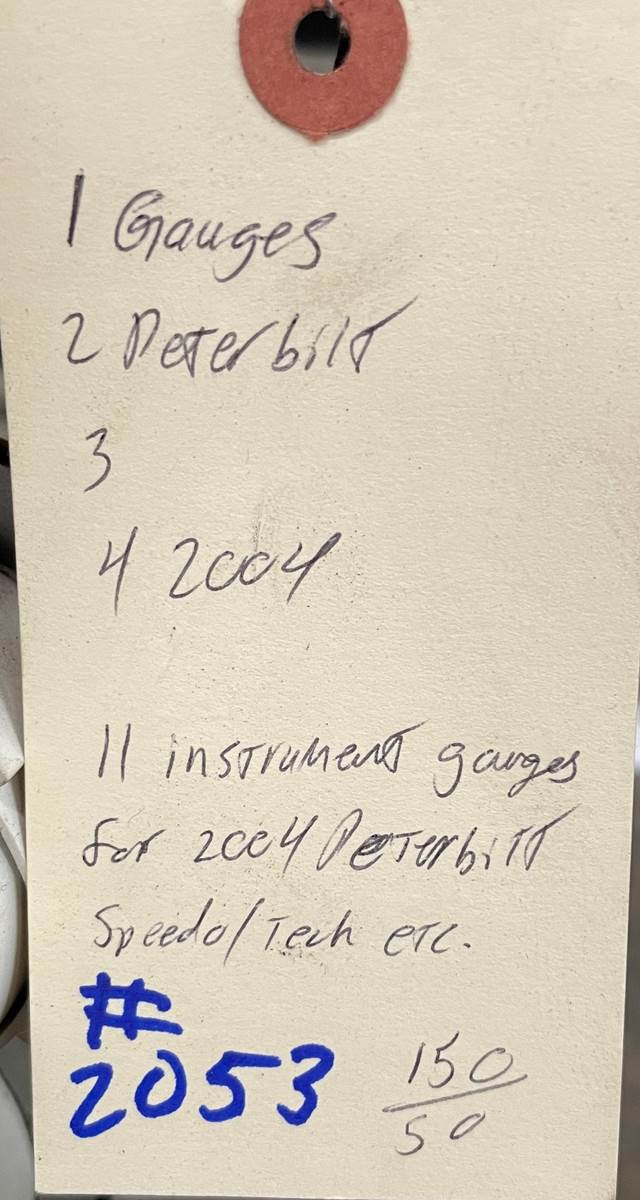 1 Gauges
2 Peterbilt
3
4 2004
11 instrument gauges
for 2004 Peterbilt
Speedo/Tech etc.
#
2053
150
50